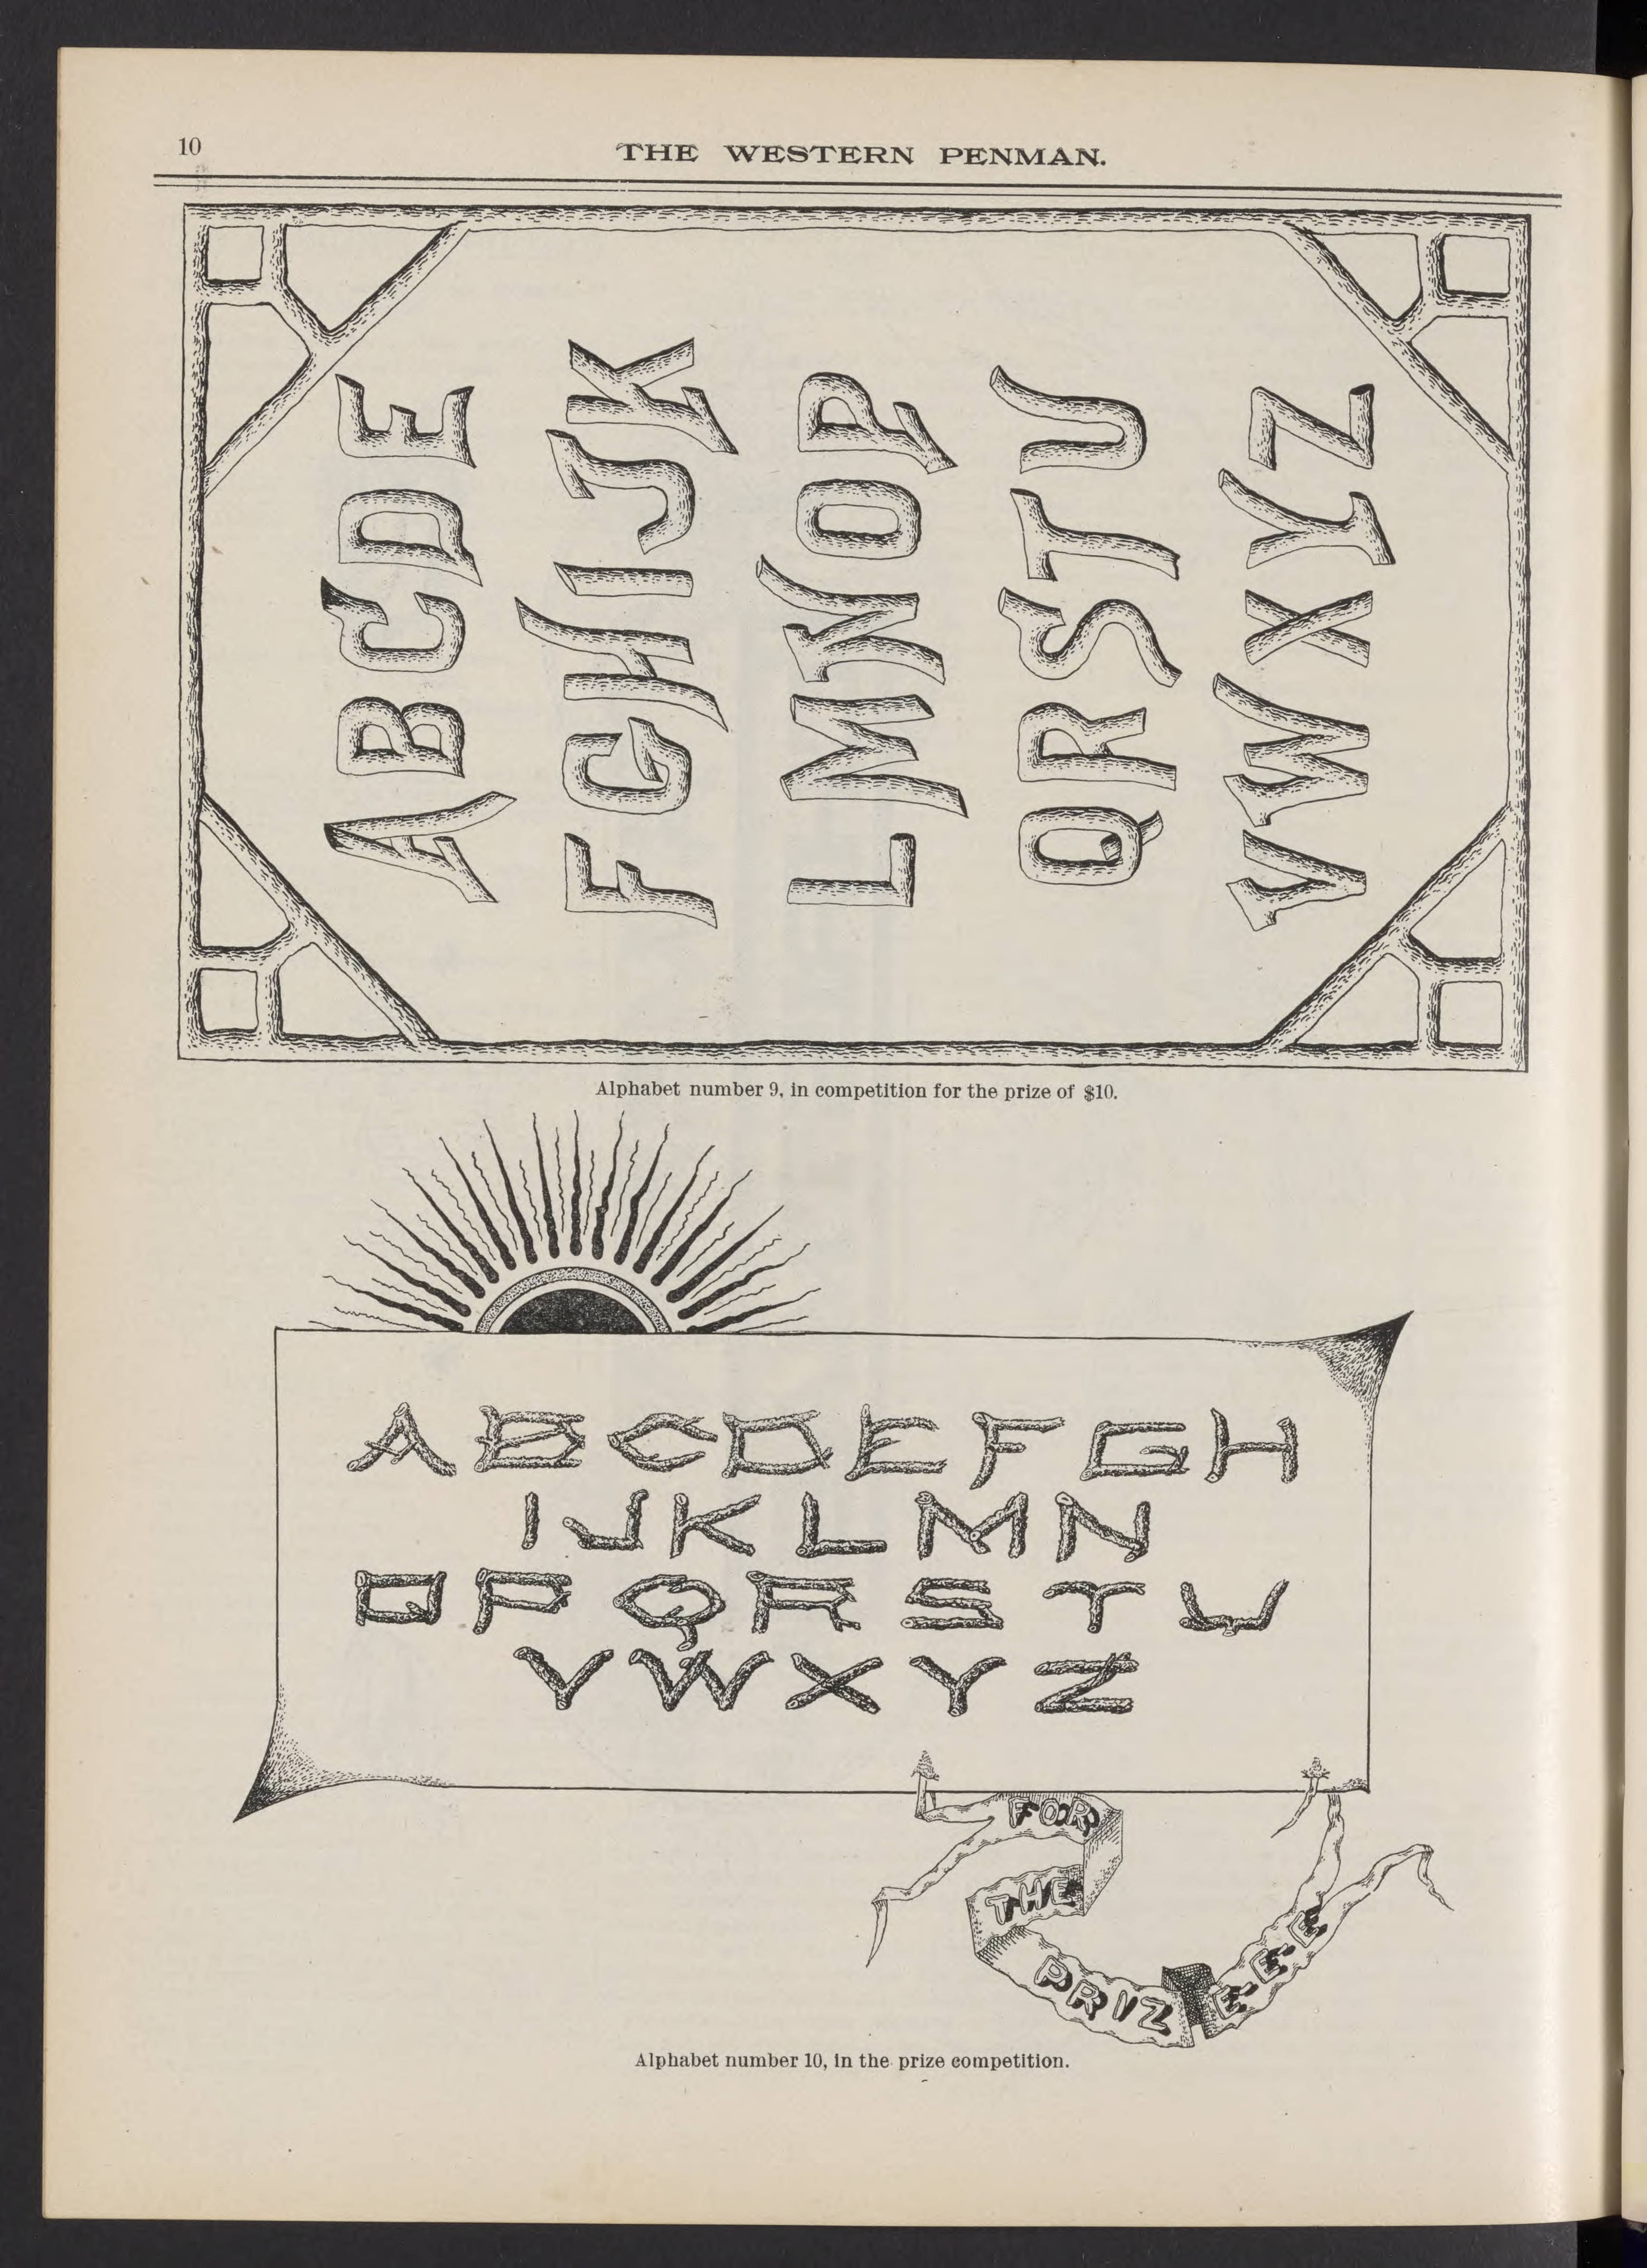 10
THE WESTERN PENMAN.
A B C D E
F G H I J K
L M N O P
Q R S T U
V W X Y Z
Alphabet number 9, in competition for the prize of $10.
A B C D E F G H
I J K L M N
O P Q R S T U
V W X Y Z
FOR
THE
PRIZ
E E E
Alphabet number 10, in the prize competition.